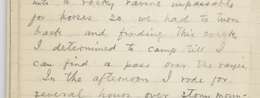 into a rocky ravine impassable
for horses so we had to turn
back and finding this creek
I determined to camp till I
can find a pass over the range
In the afternoon I rode for
several hours over stony moun-